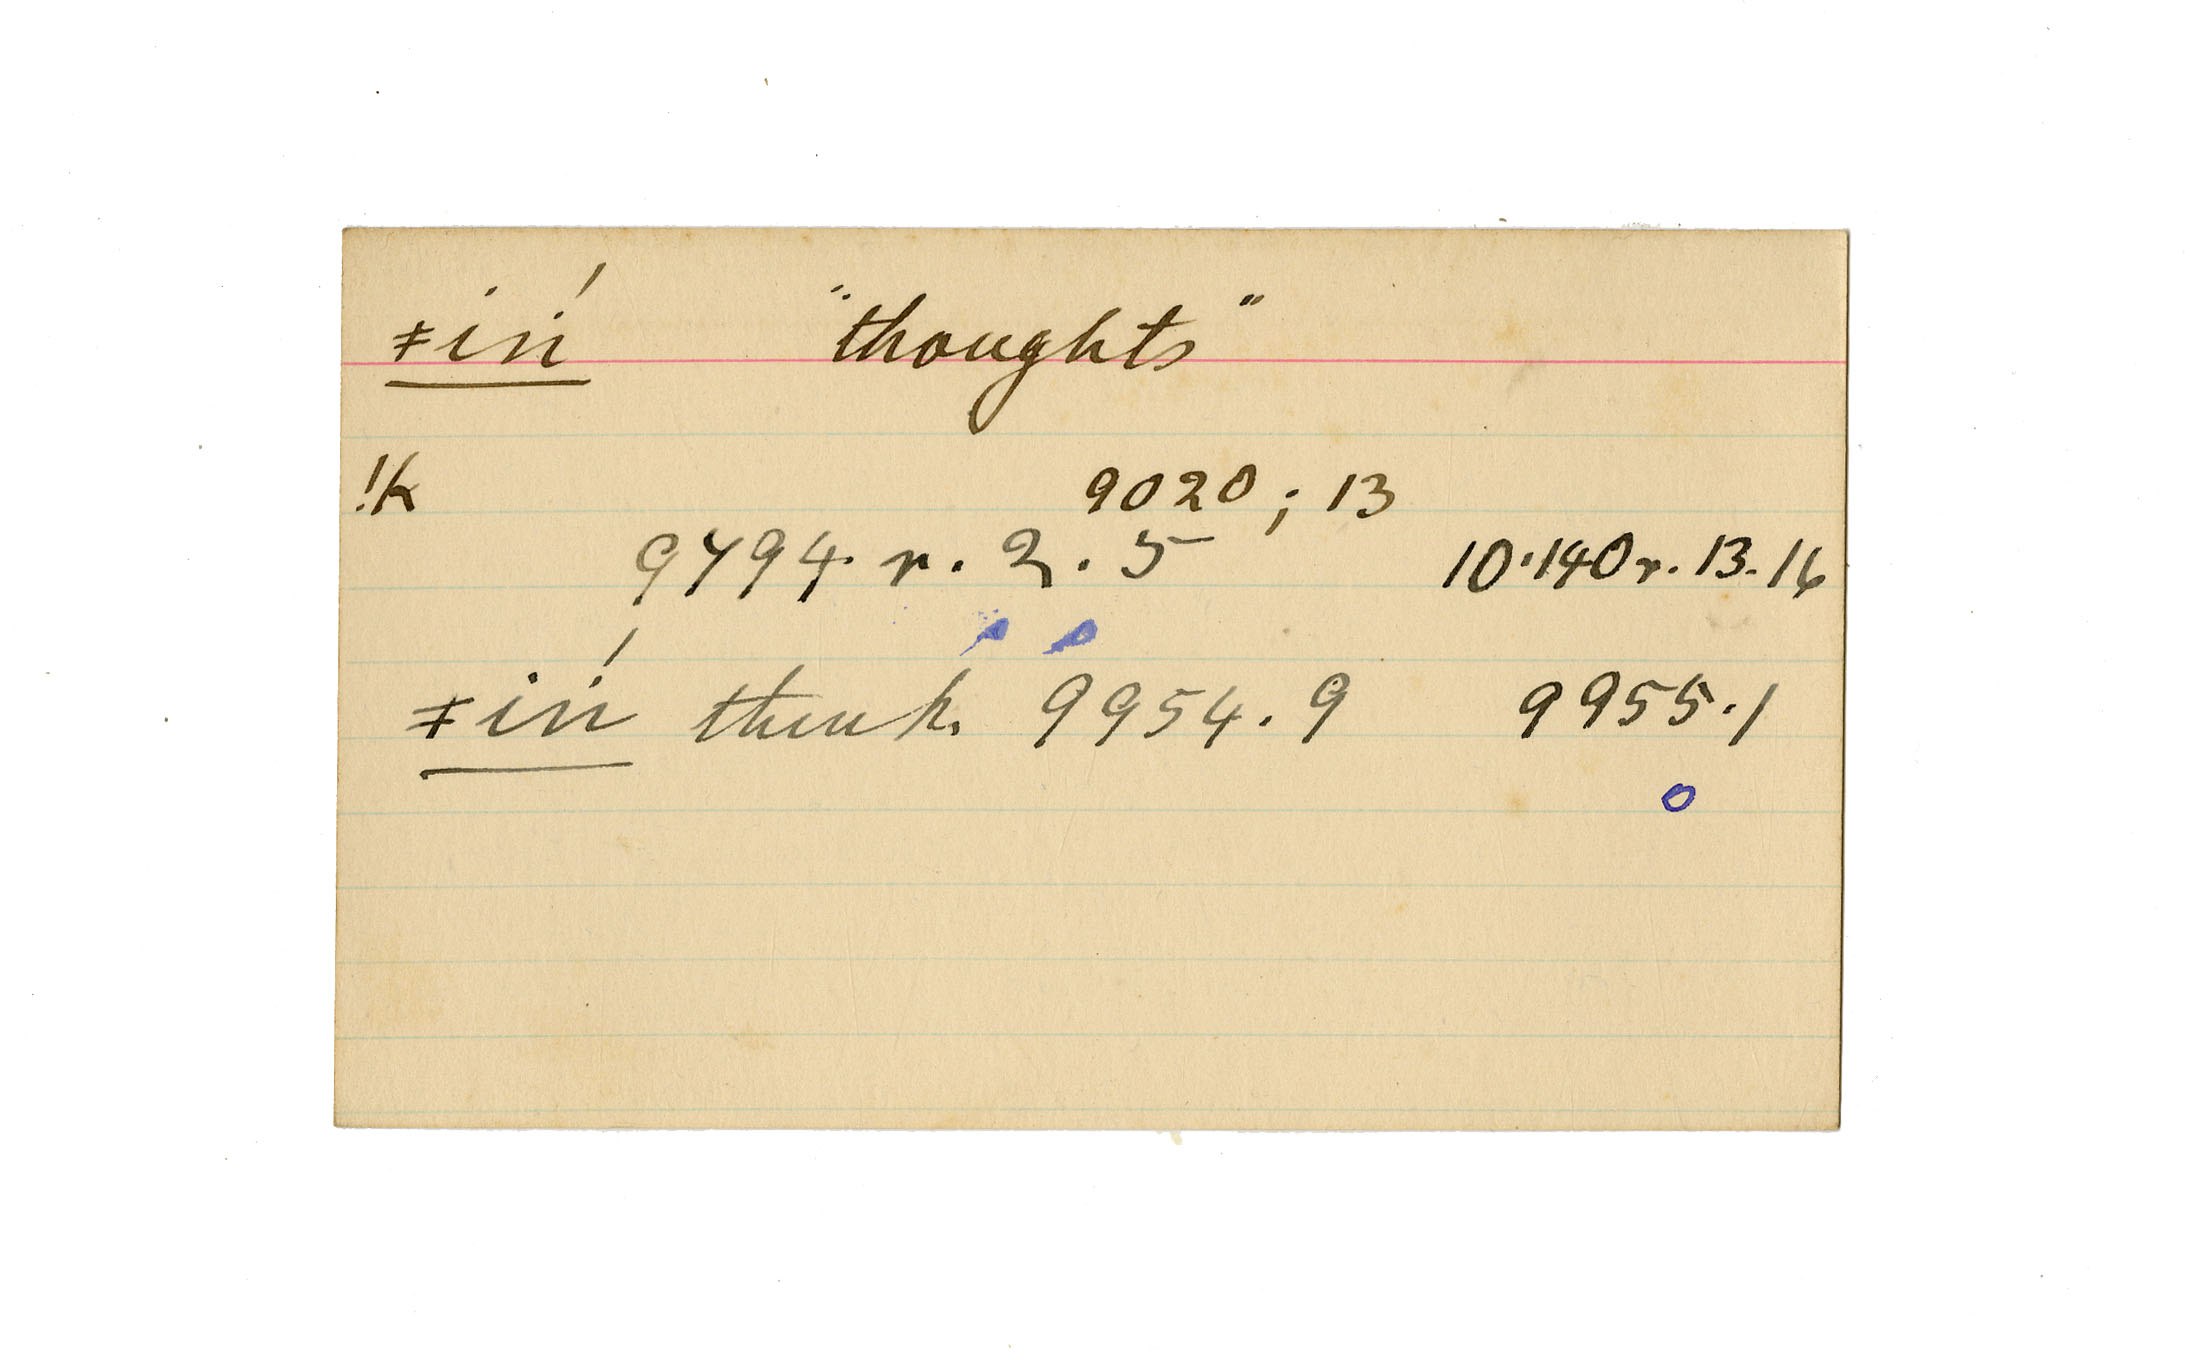 ǂíṅ "thoughts"
!k 9020; 13
9494 r. 2. 5 10.140 r. 13.16
ǂíṅ think 9954.9 9955.1